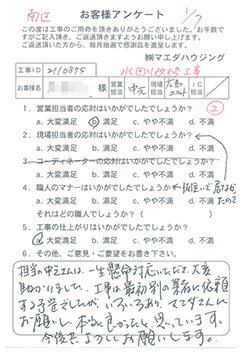 南区
お客様アンケート
1/7
この度は工事のご用命を頂きありがとうございました。お手数で
すがご記入頂き、ご返送頂きますようお願い申し上げます。
ご返送頂いた方から、毎月抽選で感謝品を進呈します。
㈱マエダハウジング
水回り改修工事
工事ID 2110895
お客様名 様 営業担当 中元 現場担当
②
1. 営業担当者の応対はいかがでしたでしょうか?
a. 大変満足 b. 満足 c. やや不満 d. 不満
2. 現場担当者の応対はいかがでしたでしょうか?
a. 大変満足 b. 満足 c. やや不満 d. 不満
3. コーディネーターの応対はいかがでしたでしょうか?
a. 大変満足 b. 満足 c. やや不満 d. 不満
4. 職人のマナーはいかがでしたでしょうか?
a. 大変満足 b. 満足 c. やや不満 d. 不満
それはどの職人でしょうか(
5. 工事の仕上がりはいかがでしたでしょうか?
a. 大変満足 b. 満足 c. やや不満 d. 不満
6. その他、ご意見・ご要望をお書き下さい。
担当の中元さんは、一生懸命対応いただき、大変
助かりました。工事は最初別の業者に依頼
する予定でしたが、いろいろあり、マエダさんに
お願いし、本当に良かったと思っています。
今後共よろしくお願いします。